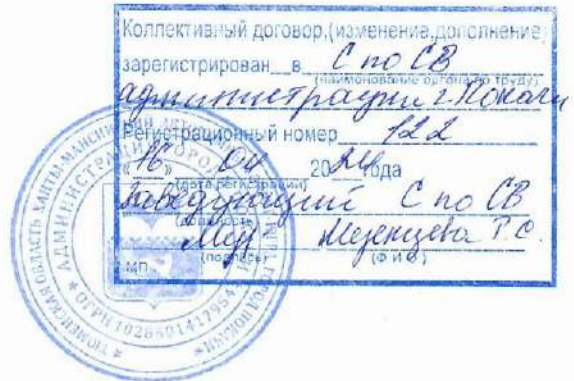 Коллективный договор,(изменение,дополнение)
зарегистрирован в С по СВ
(наименование органа по труду)
администрации г. Покачи
Регистрационный номер 122
«16» 04 20 года
(дата регистрации)
Заведующий С по СВ
(должность)
Мезенцева Р.С.
(подпись) (Ф И О)
МП
ТЮМЕНСКАЯ ОБЛАСТЬ ХАНТЫ-МАНСИЙСКИЙ ГОРОД ПОКАЧИ
АДМИНИСТРАЦИЯ ГОРОДА
ОГРН